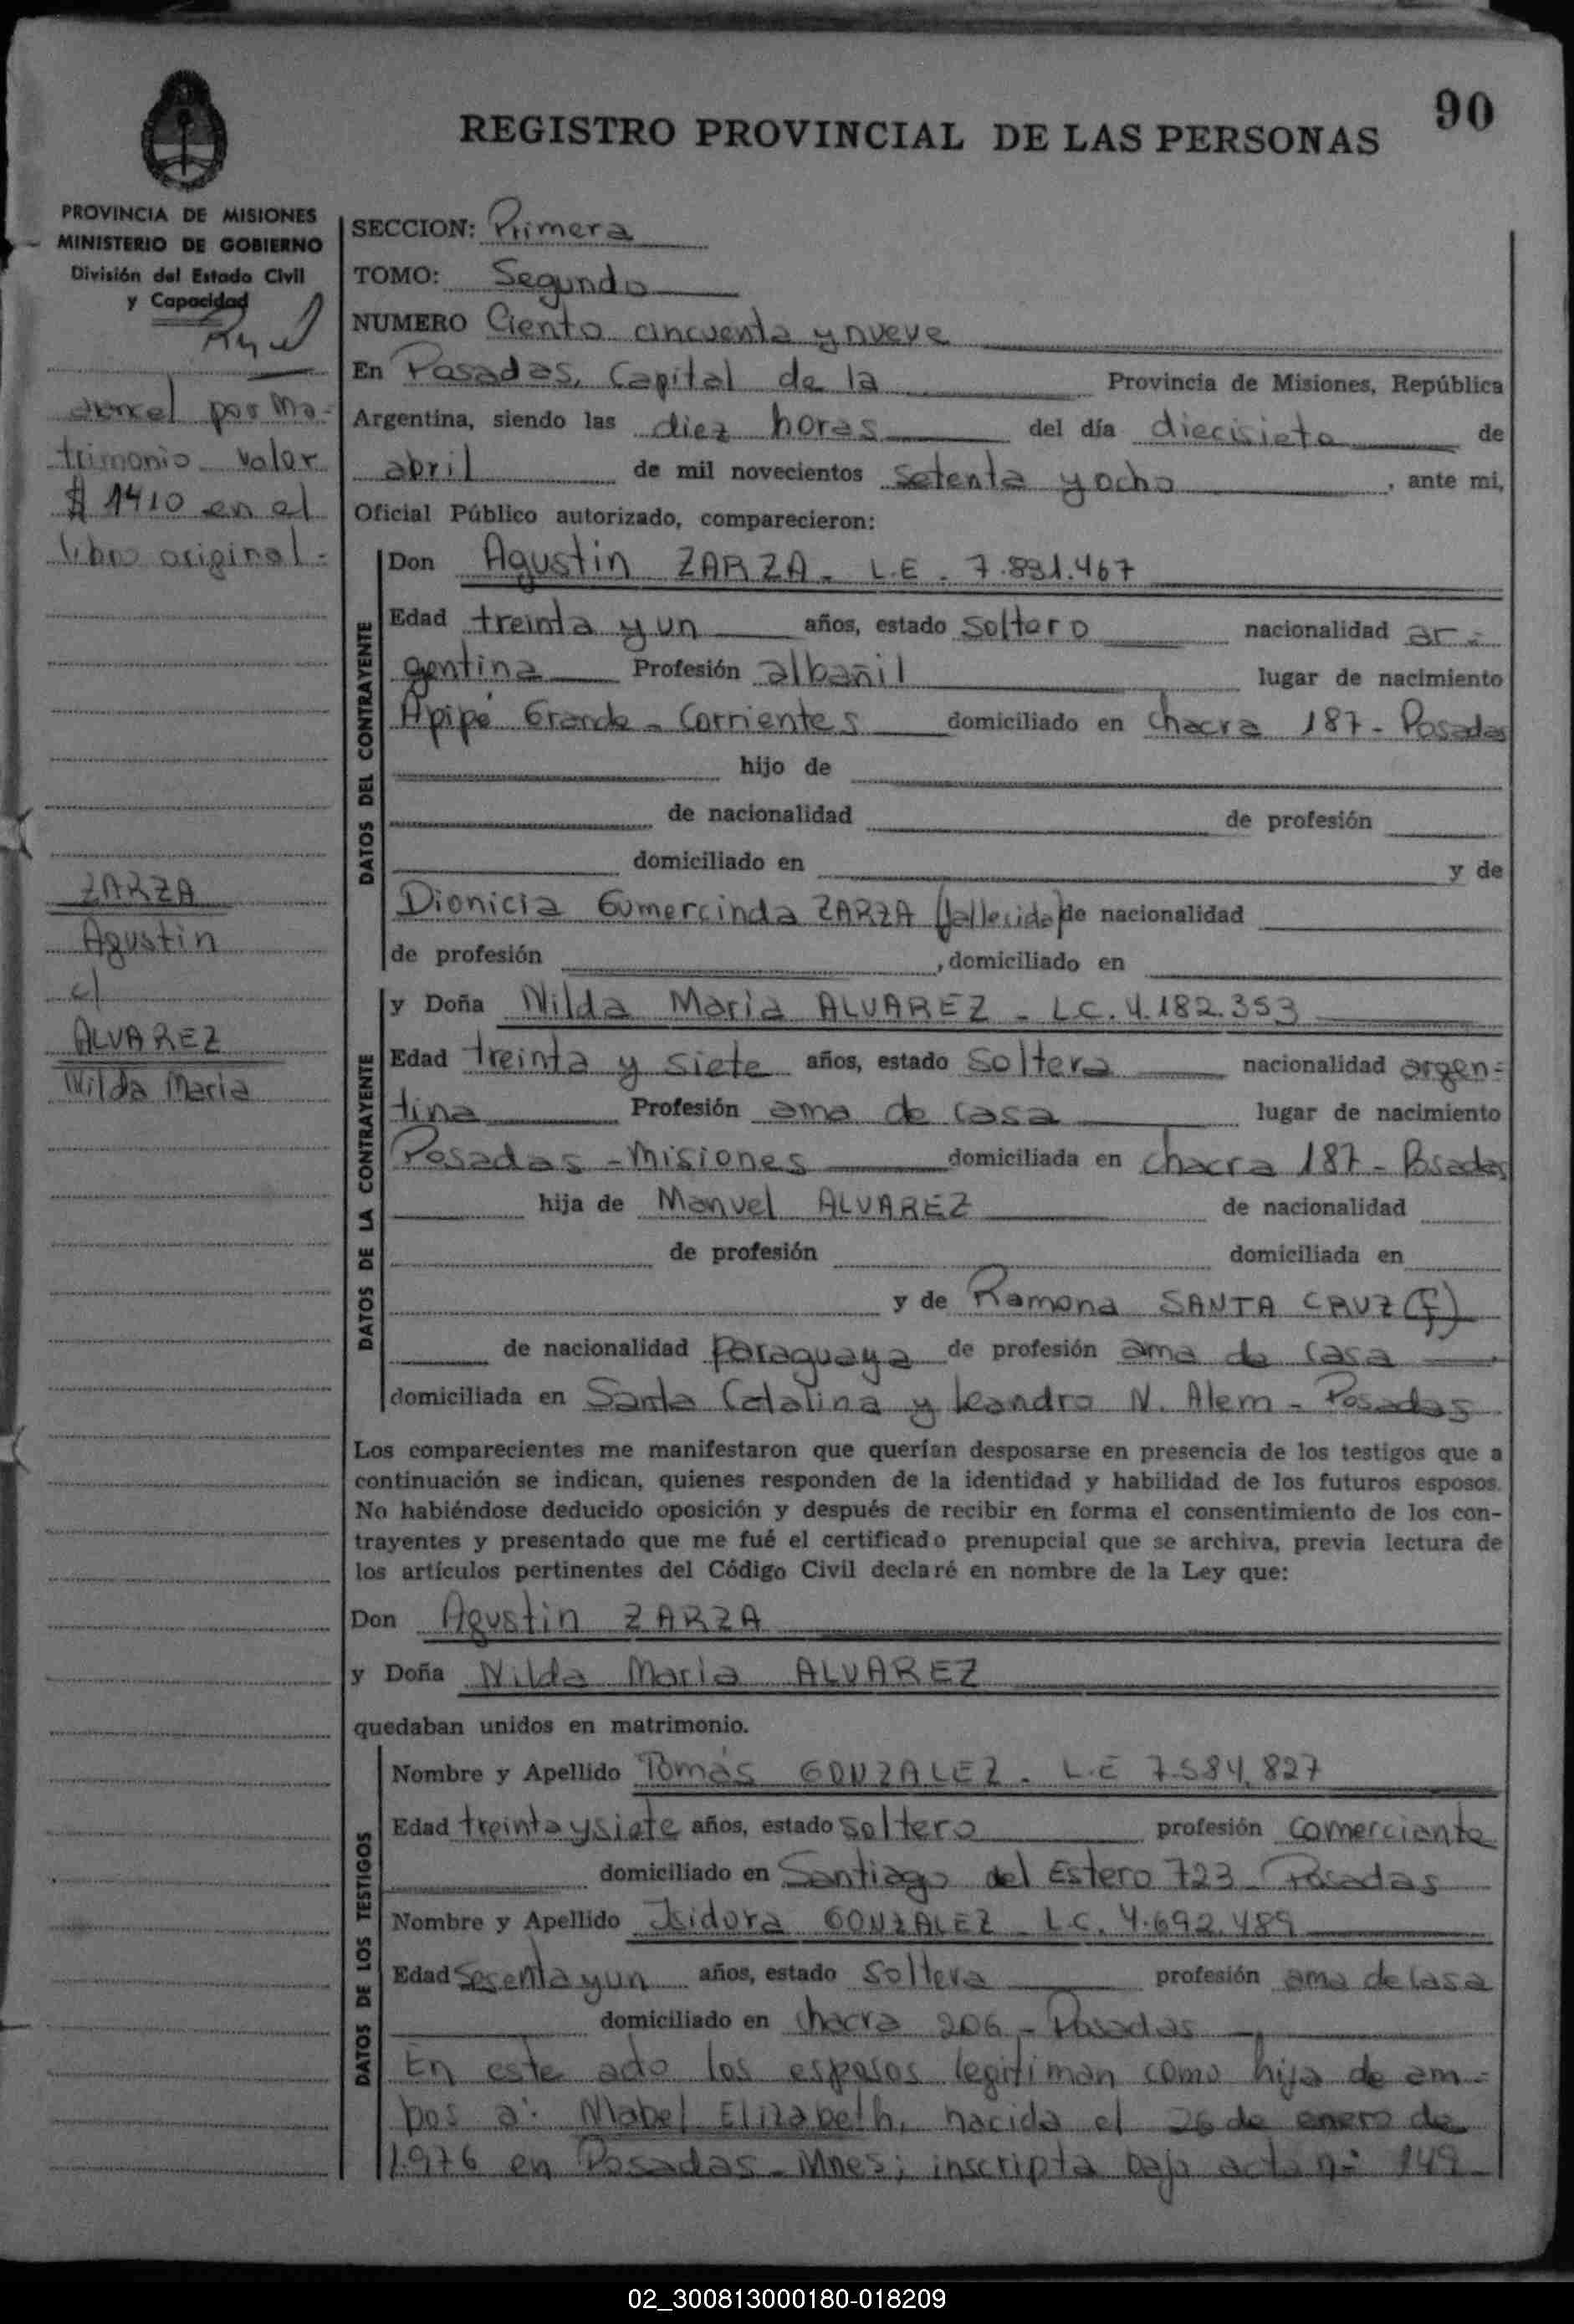 90
REGISTRO PROVINCIAL DE LAS PERSONAS
PROVINCIA DE MISIONES
MINISTERIO DE GOBIERNO
División del Estado Civil
y Capacidad
arancel por Ma-
trimonio valor
$ 1410 en el
libro original.-
ZARZA
Agustin
c/
ALVAREZ
Nilda Maria
SECCION: Primera
TOMO: Segundo
NUMERO Ciento cincuenta y nueve
En Posadas, Capital de la Provincia de Misiones, República
Argentina, siendo las diez horas del día diecisiete de
abril de mil novecientos setenta y ocho, ante mi,
Oficial Público autorizado, comparecieron:
DATOS DEL CONTRAYENTE
Don Agustin ZARZA - L.E. 7.831.467
Edad treinta y un años, estado soltero nacionalidad ar-
gentina Profesión albañil lugar de nacimiento
Apipé Grande - Corrientes domiciliado en chacra 187 - Posadas
hijo de
de nacionalidad de profesión
domiciliado en y de
Dionicia Gumercinda ZARZA (fallecida) de nacionalidad
de profesión , domiciliado en
DATOS DE LA CONTRAYENTE
y Doña Nilda Maria ALVAREZ - L.C. 4.182.353
Edad treinta y siete años, estado soltera nacionalidad argen-
tina Profesión ama de casa lugar de nacimiento
Posadas - Misiones domiciliada en chacra 187 - Posadas
hija de Manuel ALVAREZ de nacionalidad
de profesión domiciliada en
y de Ramona SANTA CRUZ (f)
de nacionalidad paraguaya de profesión ama de casa
domiciliada en Santa Catalina y Leandro N. Alem - Posadas
Los comparecientes me manifestaron que querían desposarse en presencia de los testigos que a
continuación se indican, quienes responden de la identidad y habilidad de los futuros esposos.
No habiéndose deducido oposición y después de recibir en forma el consentimiento de los con-
trayentes y presentado que me fué el certificado prenupcial que se archiva, previa lectura de
los artículos pertinentes del Código Civil declaré en nombre de la Ley que:
Don Agustin ZARZA
y Doña Nilda Maria ALVAREZ
quedaban unidos en matrimonio.
DATOS DE LOS TESTIGOS
Nombre y Apellido Tomás GONZALEZ - L.E 7.584.827
Edad treinta y siete años, estado soltero profesión comerciante
domiciliado en Santiago del Estero 723 - Posadas
Nombre y Apellido Isidora GONZALEZ - L.C. 4.692.489
Edad sesenta y un años, estado soltera profesión ama de casa
domiciliado en chacra 206 - Posadas
En este acto los esposos legitiman como hija de am-
bos a: Mabel Elizabeth, nacida el 26 de enero de
1.976 en Posadas - Mnes; inscripta bajo acta nº 149
02_300813000180-018209